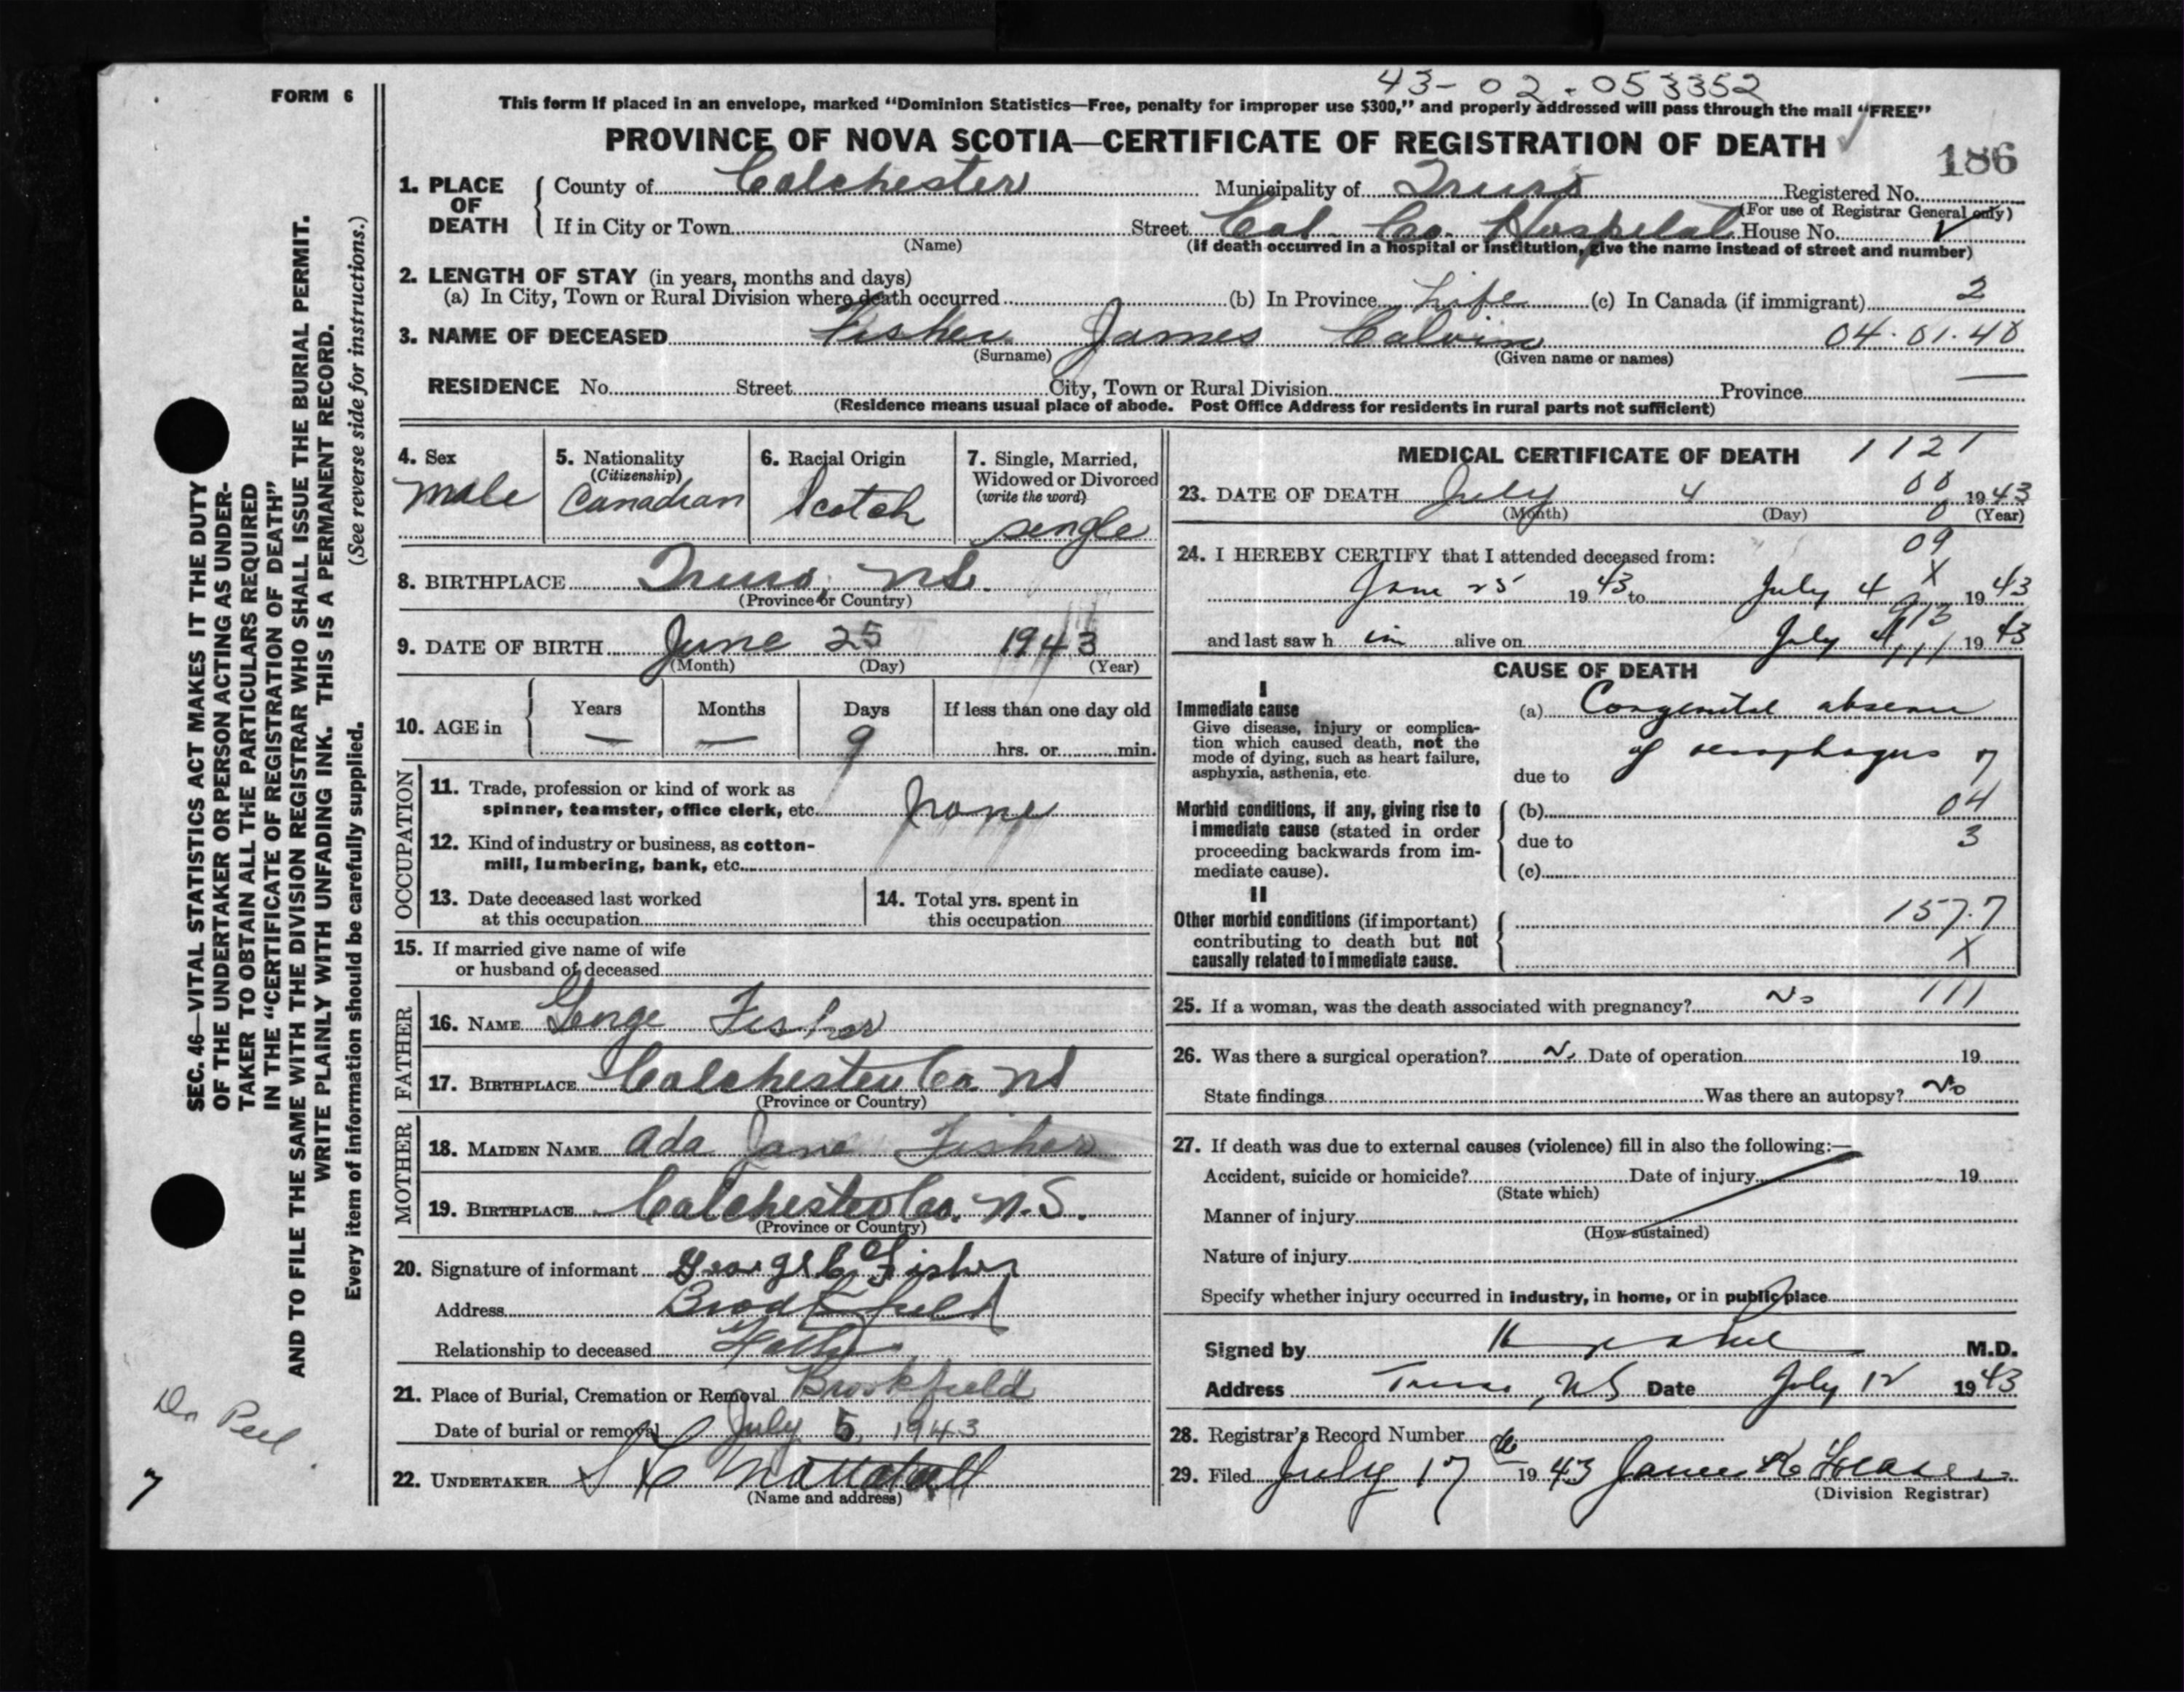 43-02-053352
FORM 6
This form if placed in an envelope, marked “Dominion Statistics—Free, penalty for improper use $300,” and properly addressed will pass through the mail “FREE”
PROVINCE OF NOVA SCOTIA—CERTIFICATE OF REGISTRATION OF DEATH
186
1. PLACE OF DEATH
County of Colchester Municipality of Truro Registered No.
(For use of Registrar General only)
If in City or Town Street Col. Co. Hospital House No.
(Name) (If death occurred in a hospital or institution, give the name instead of street and number)
2. LENGTH OF STAY (in years, months and days)
(a) In City, Town or Rural Division where death occurred (b) In Province Life (c) In Canada (if immigrant) 2
3. NAME OF DECEASED Fisher James Calvin 04.01.48
(Surname) (Given name or names)
RESIDENCE No. Street City, Town or Rural Division Province
(Residence means usual place of abode. Post Office Address for residents in rural parts not sufficient)
4. Sex
male
5. Nationality
(Citizenship)
Canadian
6. Racial Origin
Scotch
7. Single, Married,
Widowed or Divorced
(write the word)
single
8. BIRTHPLACE Truro, N.S.
(Province or Country)
9. DATE OF BIRTH June 25 1943
(Month) (Day) (Year)
10. AGE in
Years Months Days If less than one day old
— — 9 hrs. or min.
OCCUPATION
11. Trade, profession or kind of work as
spinner, teamster, office clerk, etc. none
12. Kind of industry or business, as cotton-
mill, lumbering, bank, etc.
13. Date deceased last worked
at this occupation
14. Total yrs. spent in
this occupation
15. If married give name of wife
or husband of deceased
FATHER
16. NAME George Fisher
17. BIRTHPLACE Colchester Co. NS
(Province or Country)
MOTHER
18. MAIDEN NAME Ada Jane Fisher
19. BIRTHPLACE Colchester Co. N.S.
(Province or Country)
20. Signature of informant George C Fisher
Address Brookfield
Relationship to deceased Father
21. Place of Burial, Cremation or Removal Brookfield
Date of burial or removal July 5, 1943
22. UNDERTAKER
(Name and address)
MEDICAL CERTIFICATE OF DEATH 1121
23. DATE OF DEATH July 4 00 1943
(Month) (Day) 0 (Year)
24. I HEREBY CERTIFY that I attended deceased from: 09
June 25 1943 to July 4 X 1943
and last saw him alive on July 4 1943
CAUSE OF DEATH
I
Immediate cause
Give disease, injury or complica-
tion which caused death, not the
mode of dying, such as heart failure,
asphyxia, asthenia, etc.
(a) Congenital absence
of oesophagus 7
due to
Morbid conditions, if any, giving rise to
immediate cause (stated in order
proceeding backwards from im-
mediate cause).
(b) 04
due to 3
(c)
II
Other morbid conditions (if important)
contributing to death but not
causally related to immediate cause.
157.7
X
25. If a woman, was the death associated with pregnancy? No 111
26. Was there a surgical operation? No Date of operation 19
State findings Was there an autopsy? No
27. If death was due to external causes (violence) fill in also the following:—
Accident, suicide or homicide? Date of injury 19
(State which)
Manner of injury
(How sustained)
Nature of injury
Specify whether injury occurred in industry, in home, or in public place
Signed by M.D.
Address Truro, NS Date July 12 1943
28. Registrar's Record Number
29. Filed July 17th 1943 James K Fraser
(Division Registrar)
SEC. 46—VITAL STATISTICS ACT MAKES IT THE DUTY
OF THE UNDERTAKER OR PERSON ACTING AS UNDER-
TAKER TO OBTAIN ALL THE PARTICULARS REQUIRED
IN THE “CERTIFICATE OF REGISTRATION OF DEATH”
AND TO FILE THE SAME WITH THE DIVISION REGISTRAR WHO SHALL ISSUE THE BURIAL PERMIT.
WRITE PLAINLY WITH UNFADING INK. THIS IS A PERMANENT RECORD.
Every item of information should be carefully supplied. (See reverse side for instructions.)
Dr Peel
7